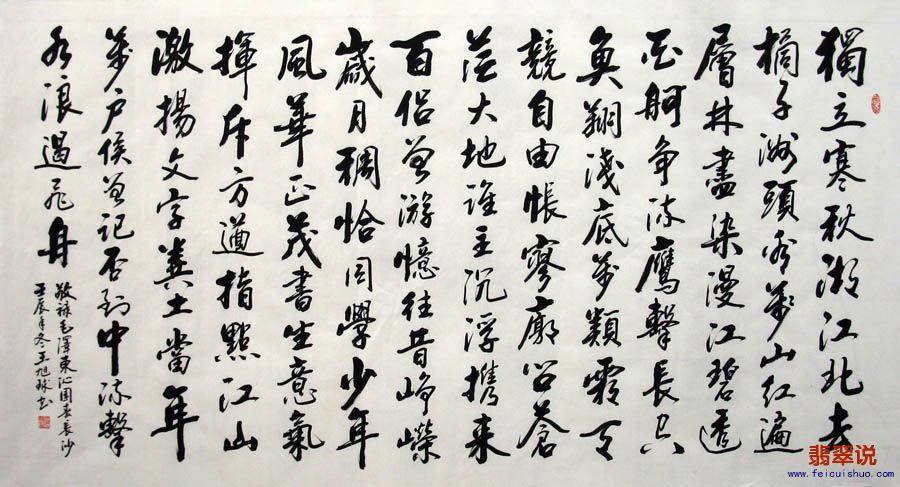 獨立寒秋湘江北去
橘子洲頭看萬山紅遍
層林盡染漫江碧透
百舸争流鷹擊長空
魚翔淺底萬類霜天
競自由悵寥廓问蒼
茫大地誰主沉浮携来
百侣曾游憶往昔崢嶸
歲月稠恰同學少年
風華正茂書生意氣
揮斥方遒指點江山
激揚文字糞土當年
萬户侯曾記否到中流擊
水浪遏飛舟
敬禄毛澤東沁園春長沙
壬辰年冬王旭球书
翡翠说
www.feicuishuo.com